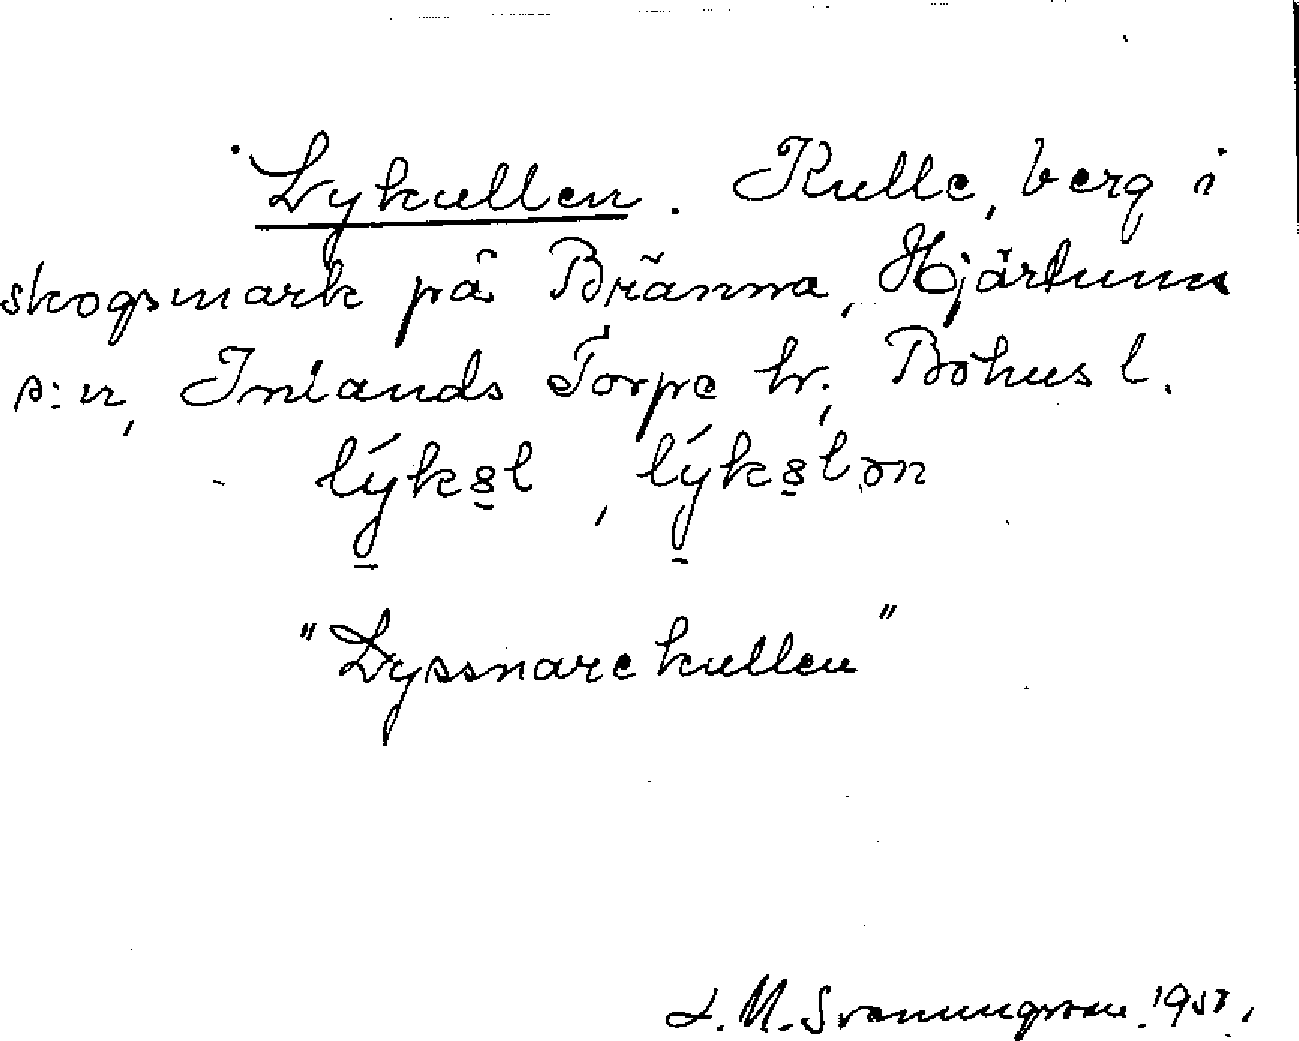 Lykullen. Kulle, berg i
skogsmark på Bränna, Hjärtums
s:n, Inlands Torpe hr., Bohus l.
lýk8̲l, lýk8̲lən
"Lyssnarekullen"
L. M. Svanungsson.